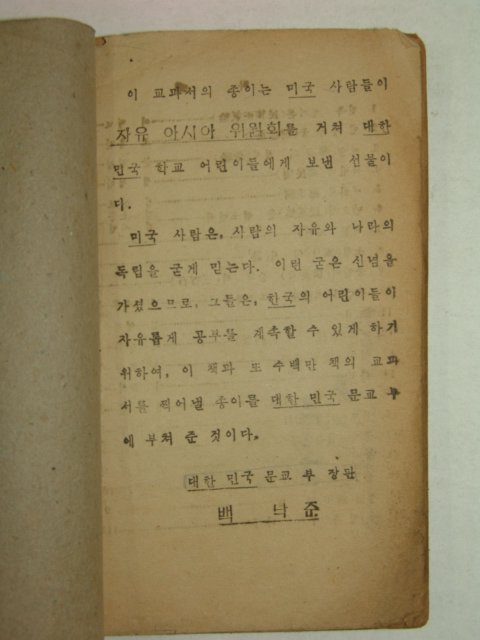 이 교과서의 종이는 미국 사람들이
자유 아시아 위원회를 거쳐 대한
민국 학교 어린이들에게 보낸 선물이
다.
미국 사람은, 사람의 자유와 나라의
독립을 굳게 믿는다. 이런 굳은 신념을
가졌으므로, 그들은, 한국의 어린이들이
자유롭게 공부를 계속할 수 있게 하기
위하여, 이 책과 또 수백만 책의 교과
서를 찍어낼 종이를 대한 민국 문교 부
에 부쳐 준 것이다.
대한 민국 문교 부 장관
백 낙 준